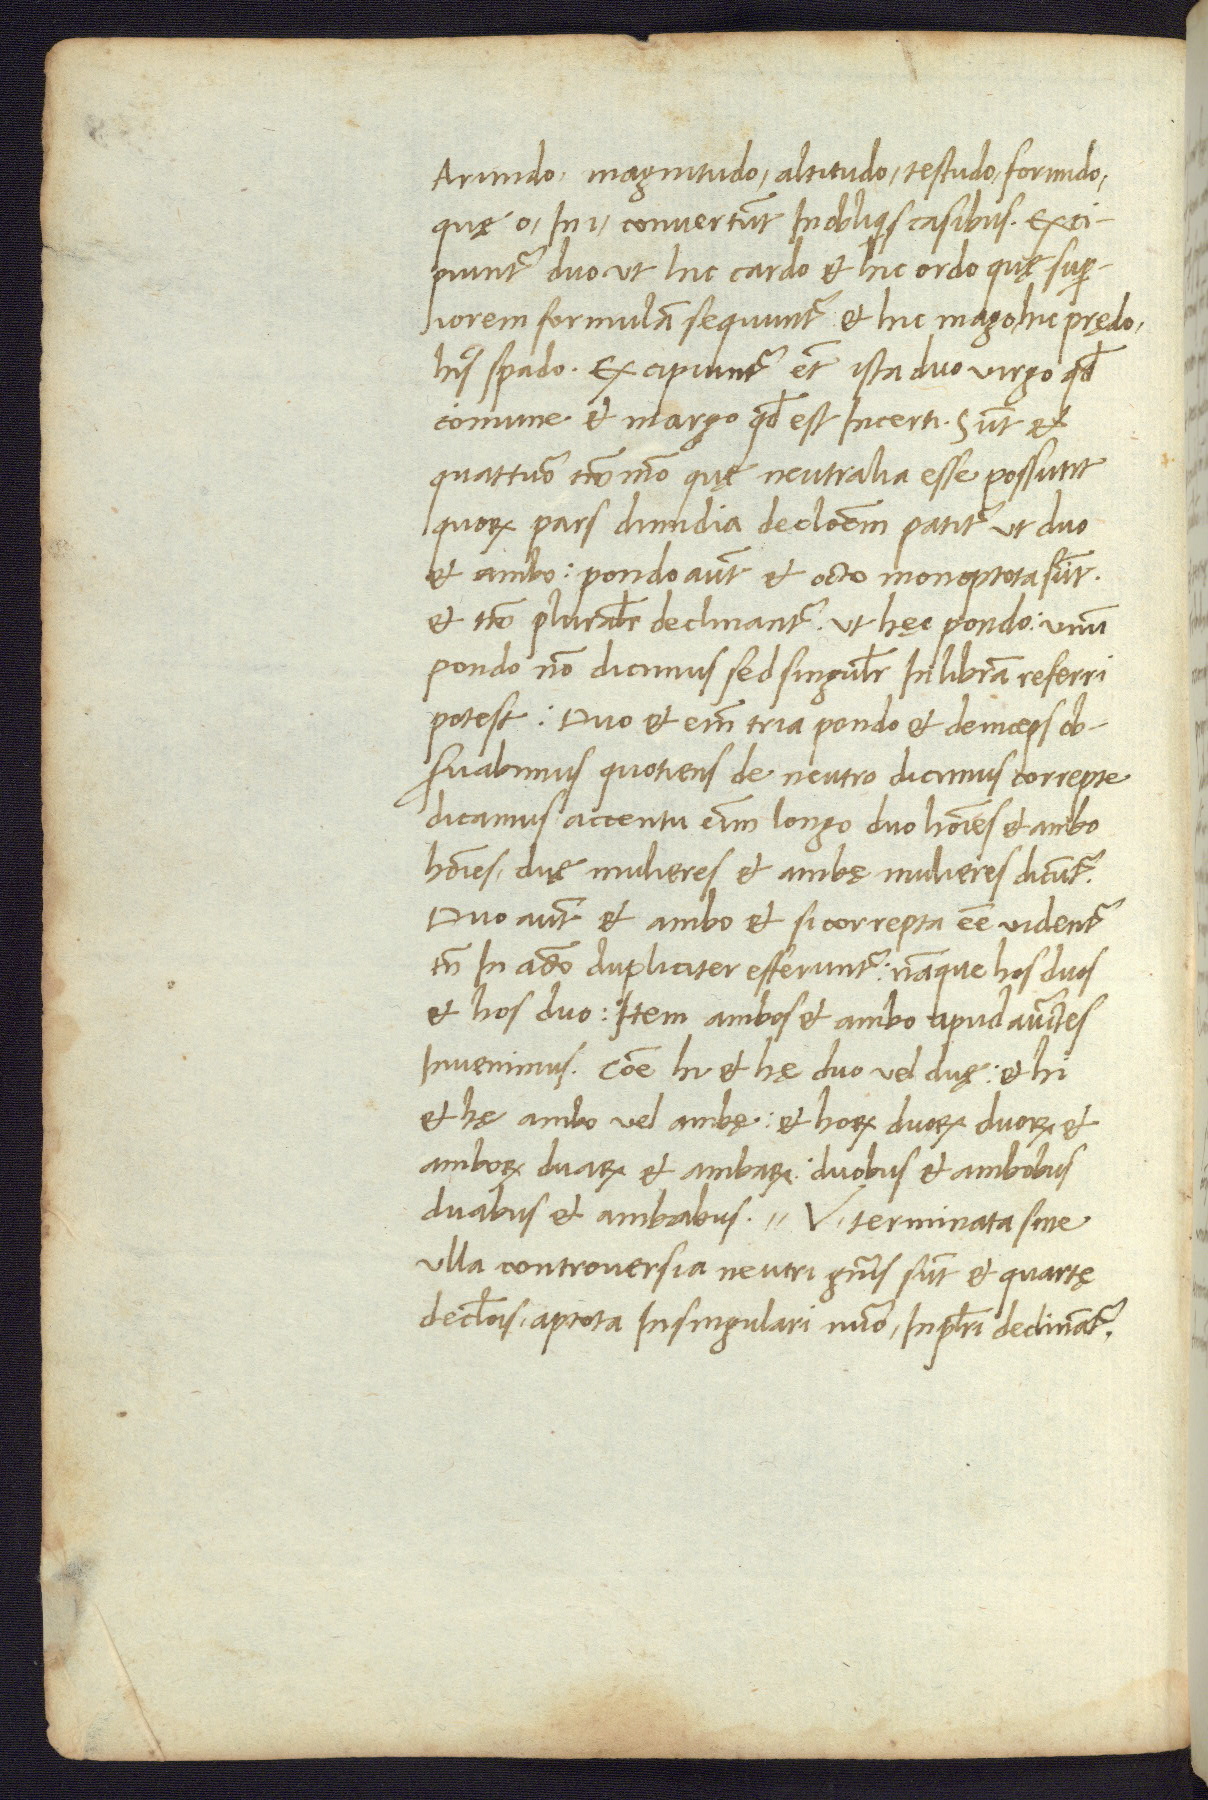 Arundo, magnitudo, altitudo, testudo, formido,
quę o, In i, conuertūt In obliqs casibus. Exci-
piuntr̄ duo vt hic cardo et hic ordo quę sup̱-
iorem formulā sequuntr̄ et hic mago, hic prędo,
spado. Excipiuntr̄ et̄ ista duo virgo qđ
cōmune et margo qđ est Incerti. Sūt et
quattuō nō quę neutralia esse possunt
quoꝝ pars dimidia decloēm patitr̄ vt duo
et ambo: pondo aūt et octo monoptota sūt.
et nō pluralr̄ declinantr̄. vt hęc pondo: vnū
pondo nō dicimus sed singulr̄ In librā referri
potest: Duo et eīm tria pondo et deinceps ob-
suabimus quotiens de neutro dicimus correpte
dicamus accentu eīm longo duo hōies et ambo
hōies, duę mulieres et ambę mulieres dicūtr̄.
Duo aūt et ambo et si correpta eē uidentr̄
tn̄ In actō dupliciter efferuntr̄: nāque hos duos
et hos duo: Item ambos et ambo apud auctēs
Inuenimus. Cōe hi et hę duo vel duę: et hi
et hę ambo vel ambę: et hoꝝ duoꝝ duoꝝ et
amboꝝ duaꝝ et ambaꝝ: duobus et ambobus
duabus et ambabus. // V, terminata sine
vlla controuersia neutri gn̄is sūt et quartę
declōis, aptota In singulari nūo, In plr̄i declināt̄r.